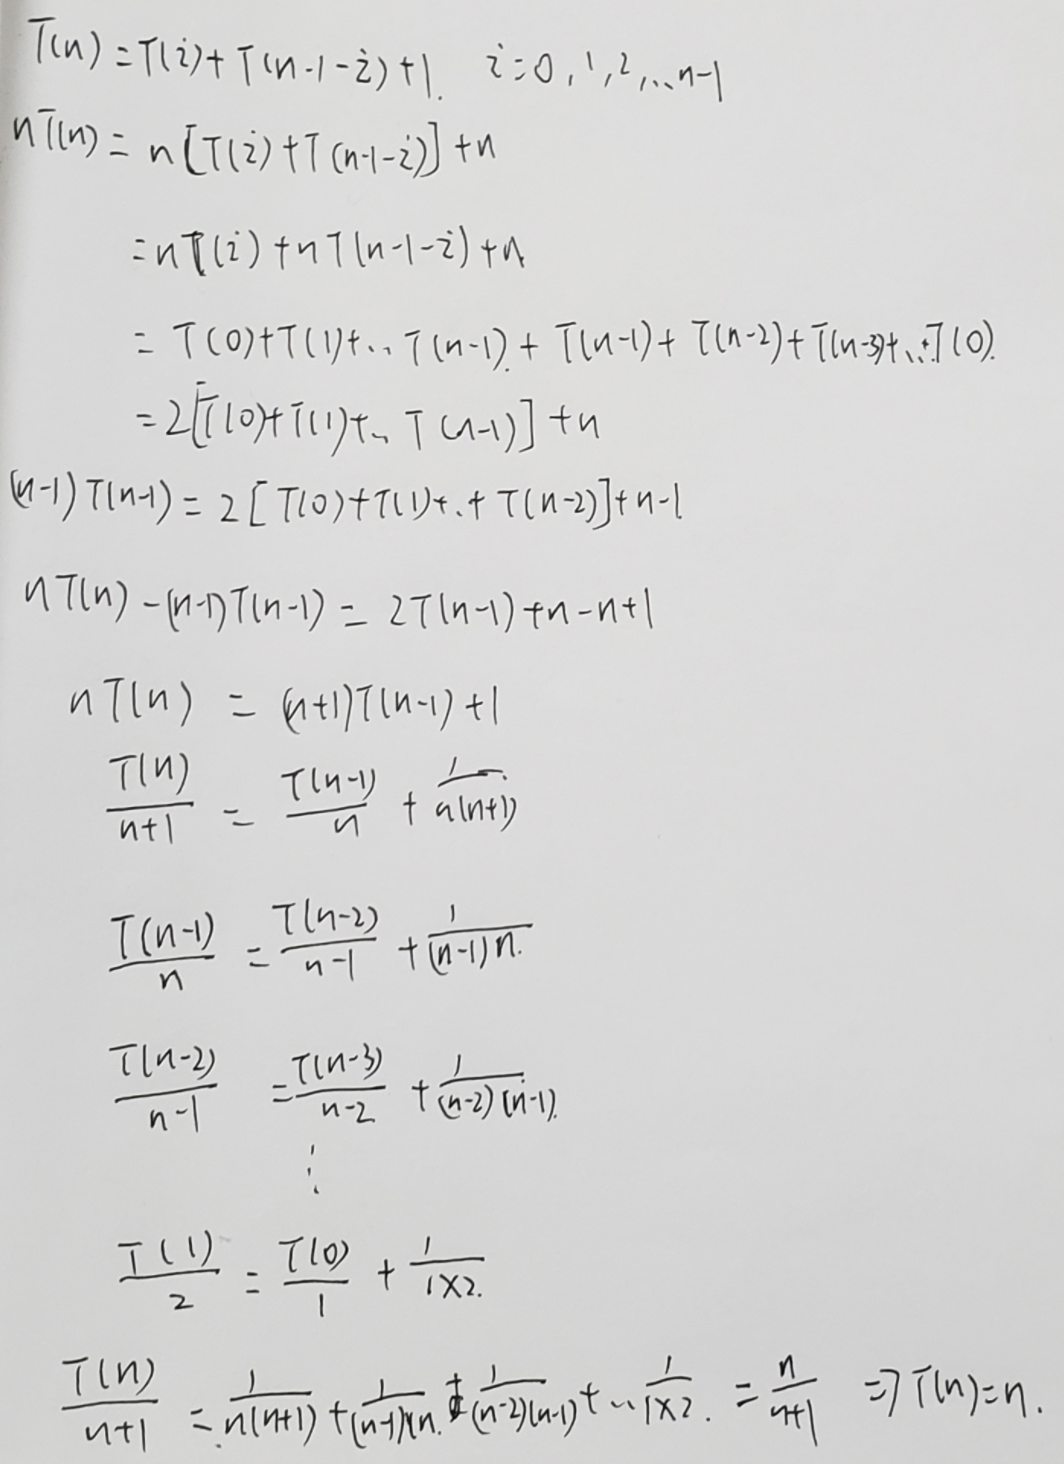 T(n) = T(i) + T(n-1-i) + 1. i=0,1,2,...n-1
nT(n) = n[T(i)+T(n-1-i)] + n
= nT(i) + nT(n-1-i) + n
= T(0)+T(1)+...T(n-1) + T(n-1) + T(n-2) + T(n-3)+...+T(0).
= 2[T(0)+T(1)+...T(n-1)] + n
(n-1)T(n-1) = 2[T(0)+T(1)+..+T(n-2)]+n-1
nT(n) - (n-1)T(n-1) = 2T(n-1) + n - n + 1
nT(n) = (n+1)T(n-1) + 1
T(n)/(n+1) = T(n-1)/n + 1/(n(n+1))
T(n-1)/n = T(n-2)/(n-1) + 1/((n-1)n).
T(n-2)/(n-1) = T(n-3)/(n-2) + 1/((n-2)(n-1)).
⋮
T(1)/2 = T(0)/1 + 1/(1×2).
T(n)/(n+1) = 1/(n(n+1)) + 1/((n-1)×n) + 1/((n-2)(n-1)) + ... 1/(1×2). = n/(n+1) ⇒ T(n)=n.